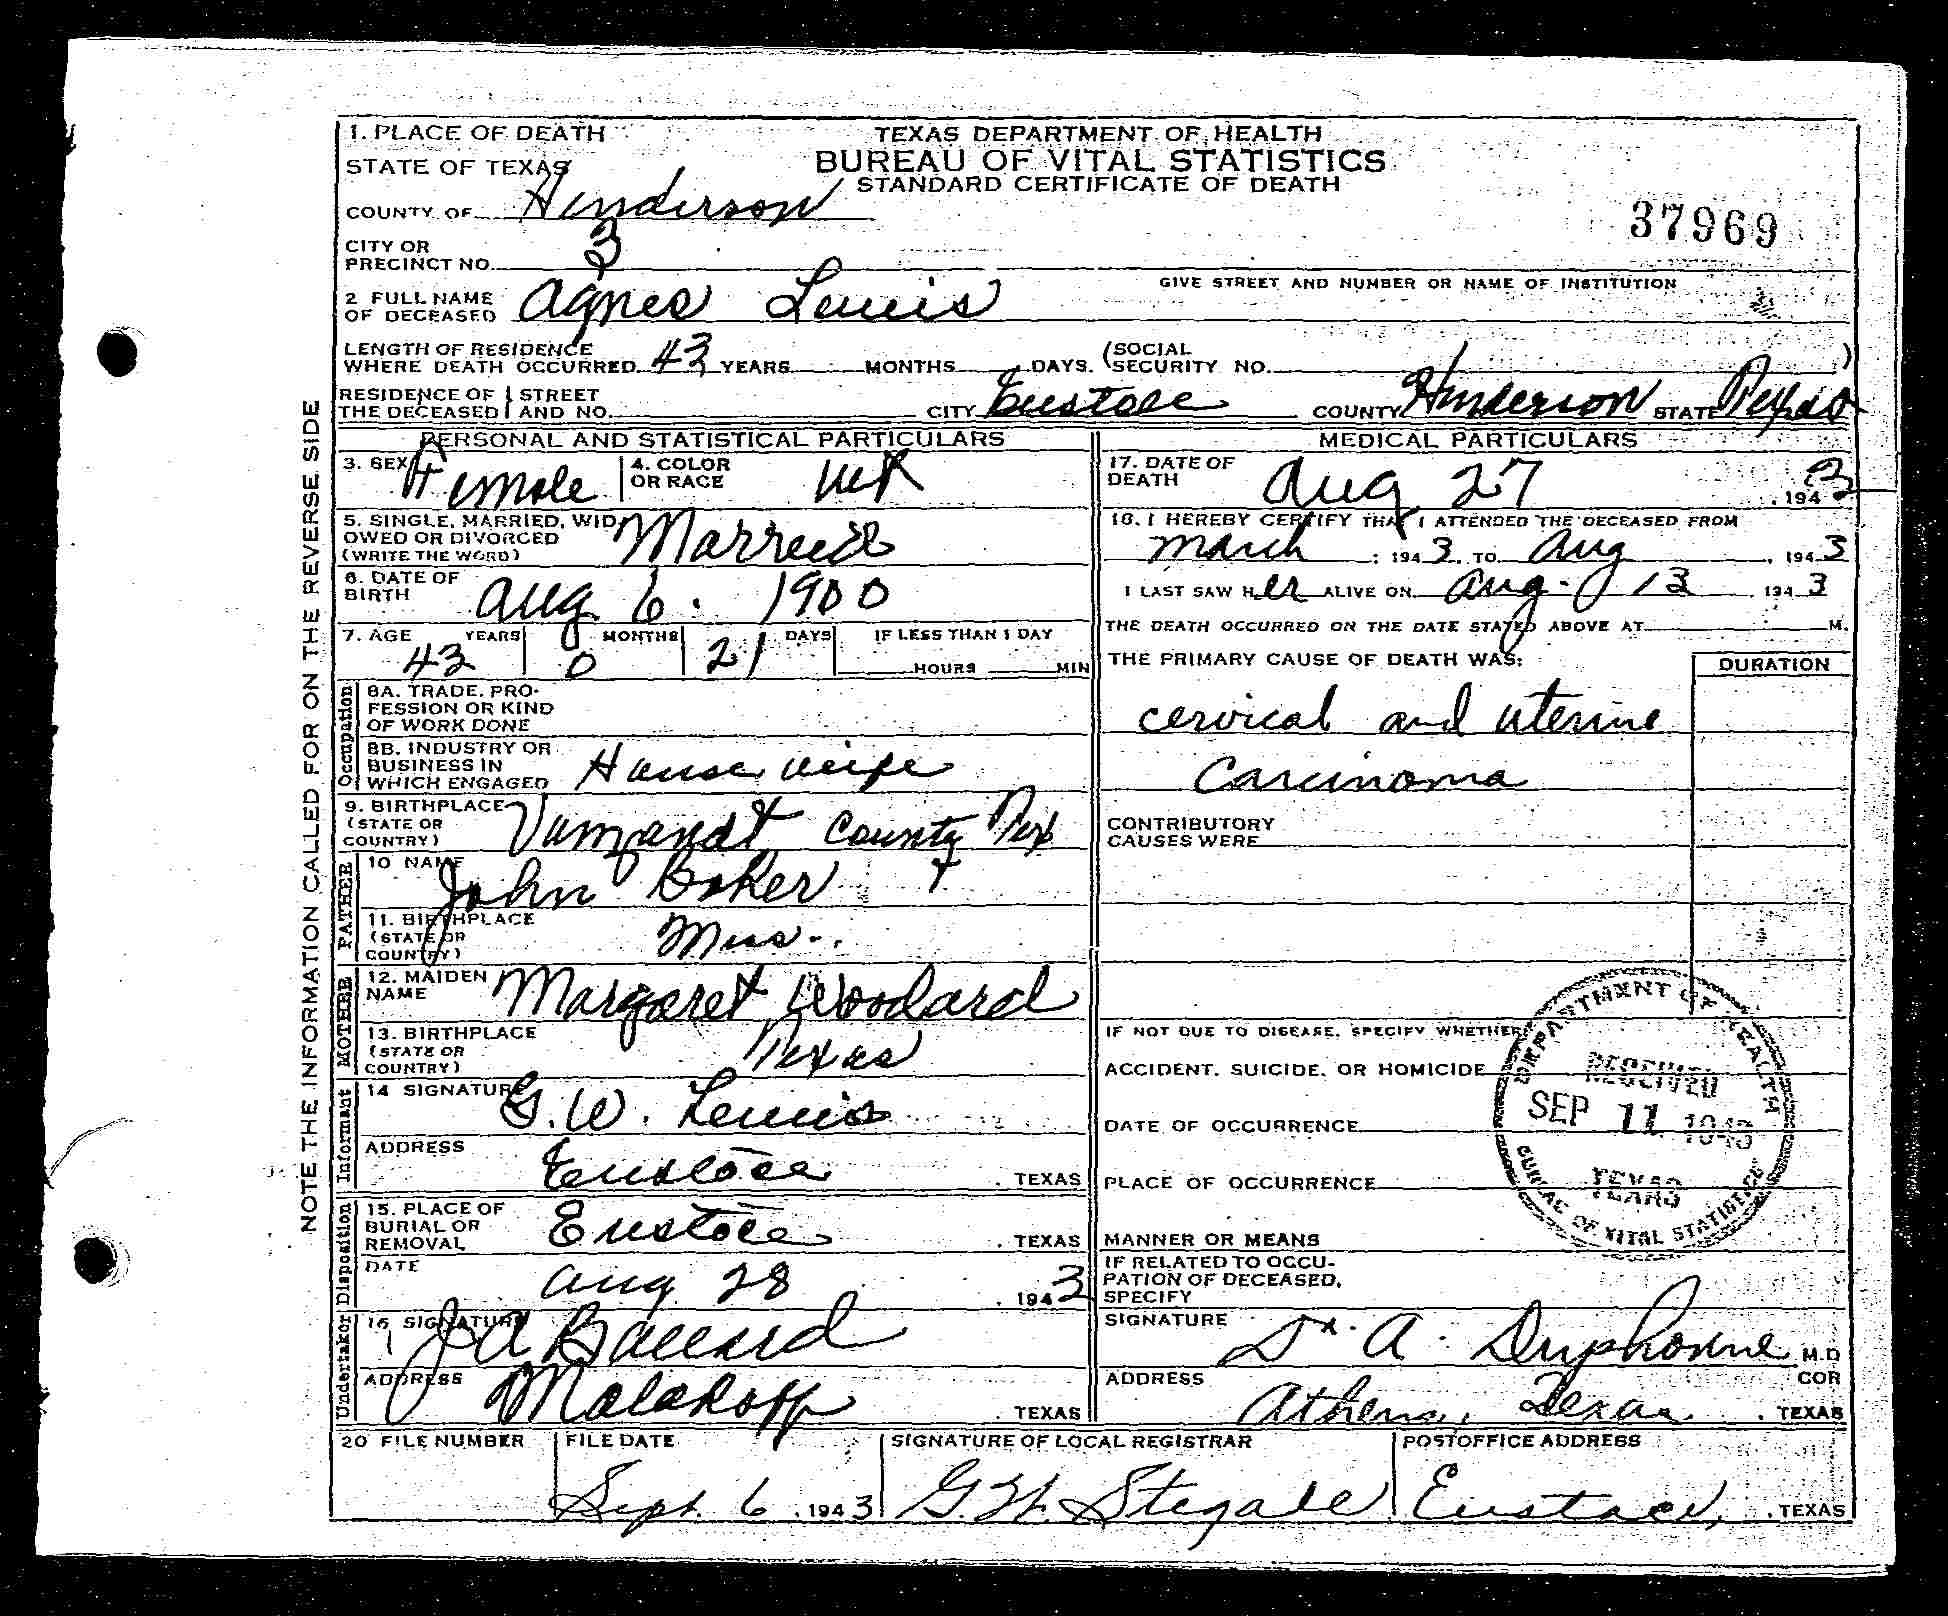 1. PLACE OF DEATH
STATE OF TEXAS
TEXAS DEPARTMENT OF HEALTH
BUREAU OF VITAL STATISTICS
STANDARD CERTIFICATE OF DEATH
COUNTY OF Henderson
37969
CITY OR PRECINCT NO. 3
GIVE STREET AND NUMBER OR NAME OF INSTITUTION
2 FULL NAME OF DECEASED Agnes Lewis
LENGTH OF RESIDENCE WHERE DEATH OCCURRED 43 YEARS MONTHS DAYS. (SOCIAL SECURITY NO. )
RESIDENCE OF THE DECEASED STREET AND NO. CITY Eustace COUNTY Henderson STATE Texas
NOTE THE INFORMATION CALLED FOR ON THE REVERSE SIDE
PERSONAL AND STATISTICAL PARTICULARS
3. SEX Female 4. COLOR OR RACE
5. SINGLE, MARRIED, WIDOWED OR DIVORCED (WRITE THE WORD) Married
6. DATE OF BIRTH Aug 6. 1900
7. AGE YEARS MONTHS DAYS IF LESS THAN 1 DAY
43 0 21 HOURS MIN
Occupation
8A. TRADE, PROFESSION OR KIND OF WORK DONE
8B. INDUSTRY OR BUSINESS IN WHICH ENGAGED House wife
9. BIRTHPLACE (STATE OR COUNTRY) Vanzandt County Tex
FATHER
10 NAME John Baker
11. BIRTHPLACE (STATE OR COUNTRY) Miss..
MOTHER
12. MAIDEN NAME Margaret Woodard
13. BIRTHPLACE (STATE OR COUNTRY) Texas
Informant
14 SIGNATURE G. W. Lewis
ADDRESS Eustace, TEXAS
Disposition
15. PLACE OF BURIAL OR REMOVAL Eustace, TEXAS
DATE Aug 28, 1943
Undertaker
16 SIGNATURE J A Ballard
ADDRESS Malakoff, TEXAS
MEDICAL PARTICULARS
17. DATE OF DEATH Aug 27, 1943
18. I HEREBY CERTIFY THAT I ATTENDED THE DECEASED FROM
March, 1943, TO Aug, 1943
I LAST SAW HER ALIVE ON Aug. 13, 1943
THE DEATH OCCURRED ON THE DATE STATED ABOVE AT M.
THE PRIMARY CAUSE OF DEATH WAS: DURATION
cervical and uterine
Carcinoma
CONTRIBUTORY CAUSES WERE
IF NOT DUE TO DISEASE, SPECIFY WHETHER
ACCIDENT, SUICIDE, OR HOMICIDE
DATE OF OCCURRENCE
PLACE OF OCCURRENCE
MANNER OR MEANS
DEPARTMENT OF HEALTH
RECEIVED
SEP 11 1943
TEXAS
BUREAU OF VITAL STATISTICS
IF RELATED TO OCCUPATION OF DECEASED, SPECIFY
SIGNATURE Dr. A. M.D
COR
ADDRESS Athens, Texas, TEXAS
20 FILE NUMBER FILE DATE SIGNATURE OF LOCAL REGISTRAR POSTOFFICE ADDRESS
Sept. 6, 1943 Eustace, TEXAS